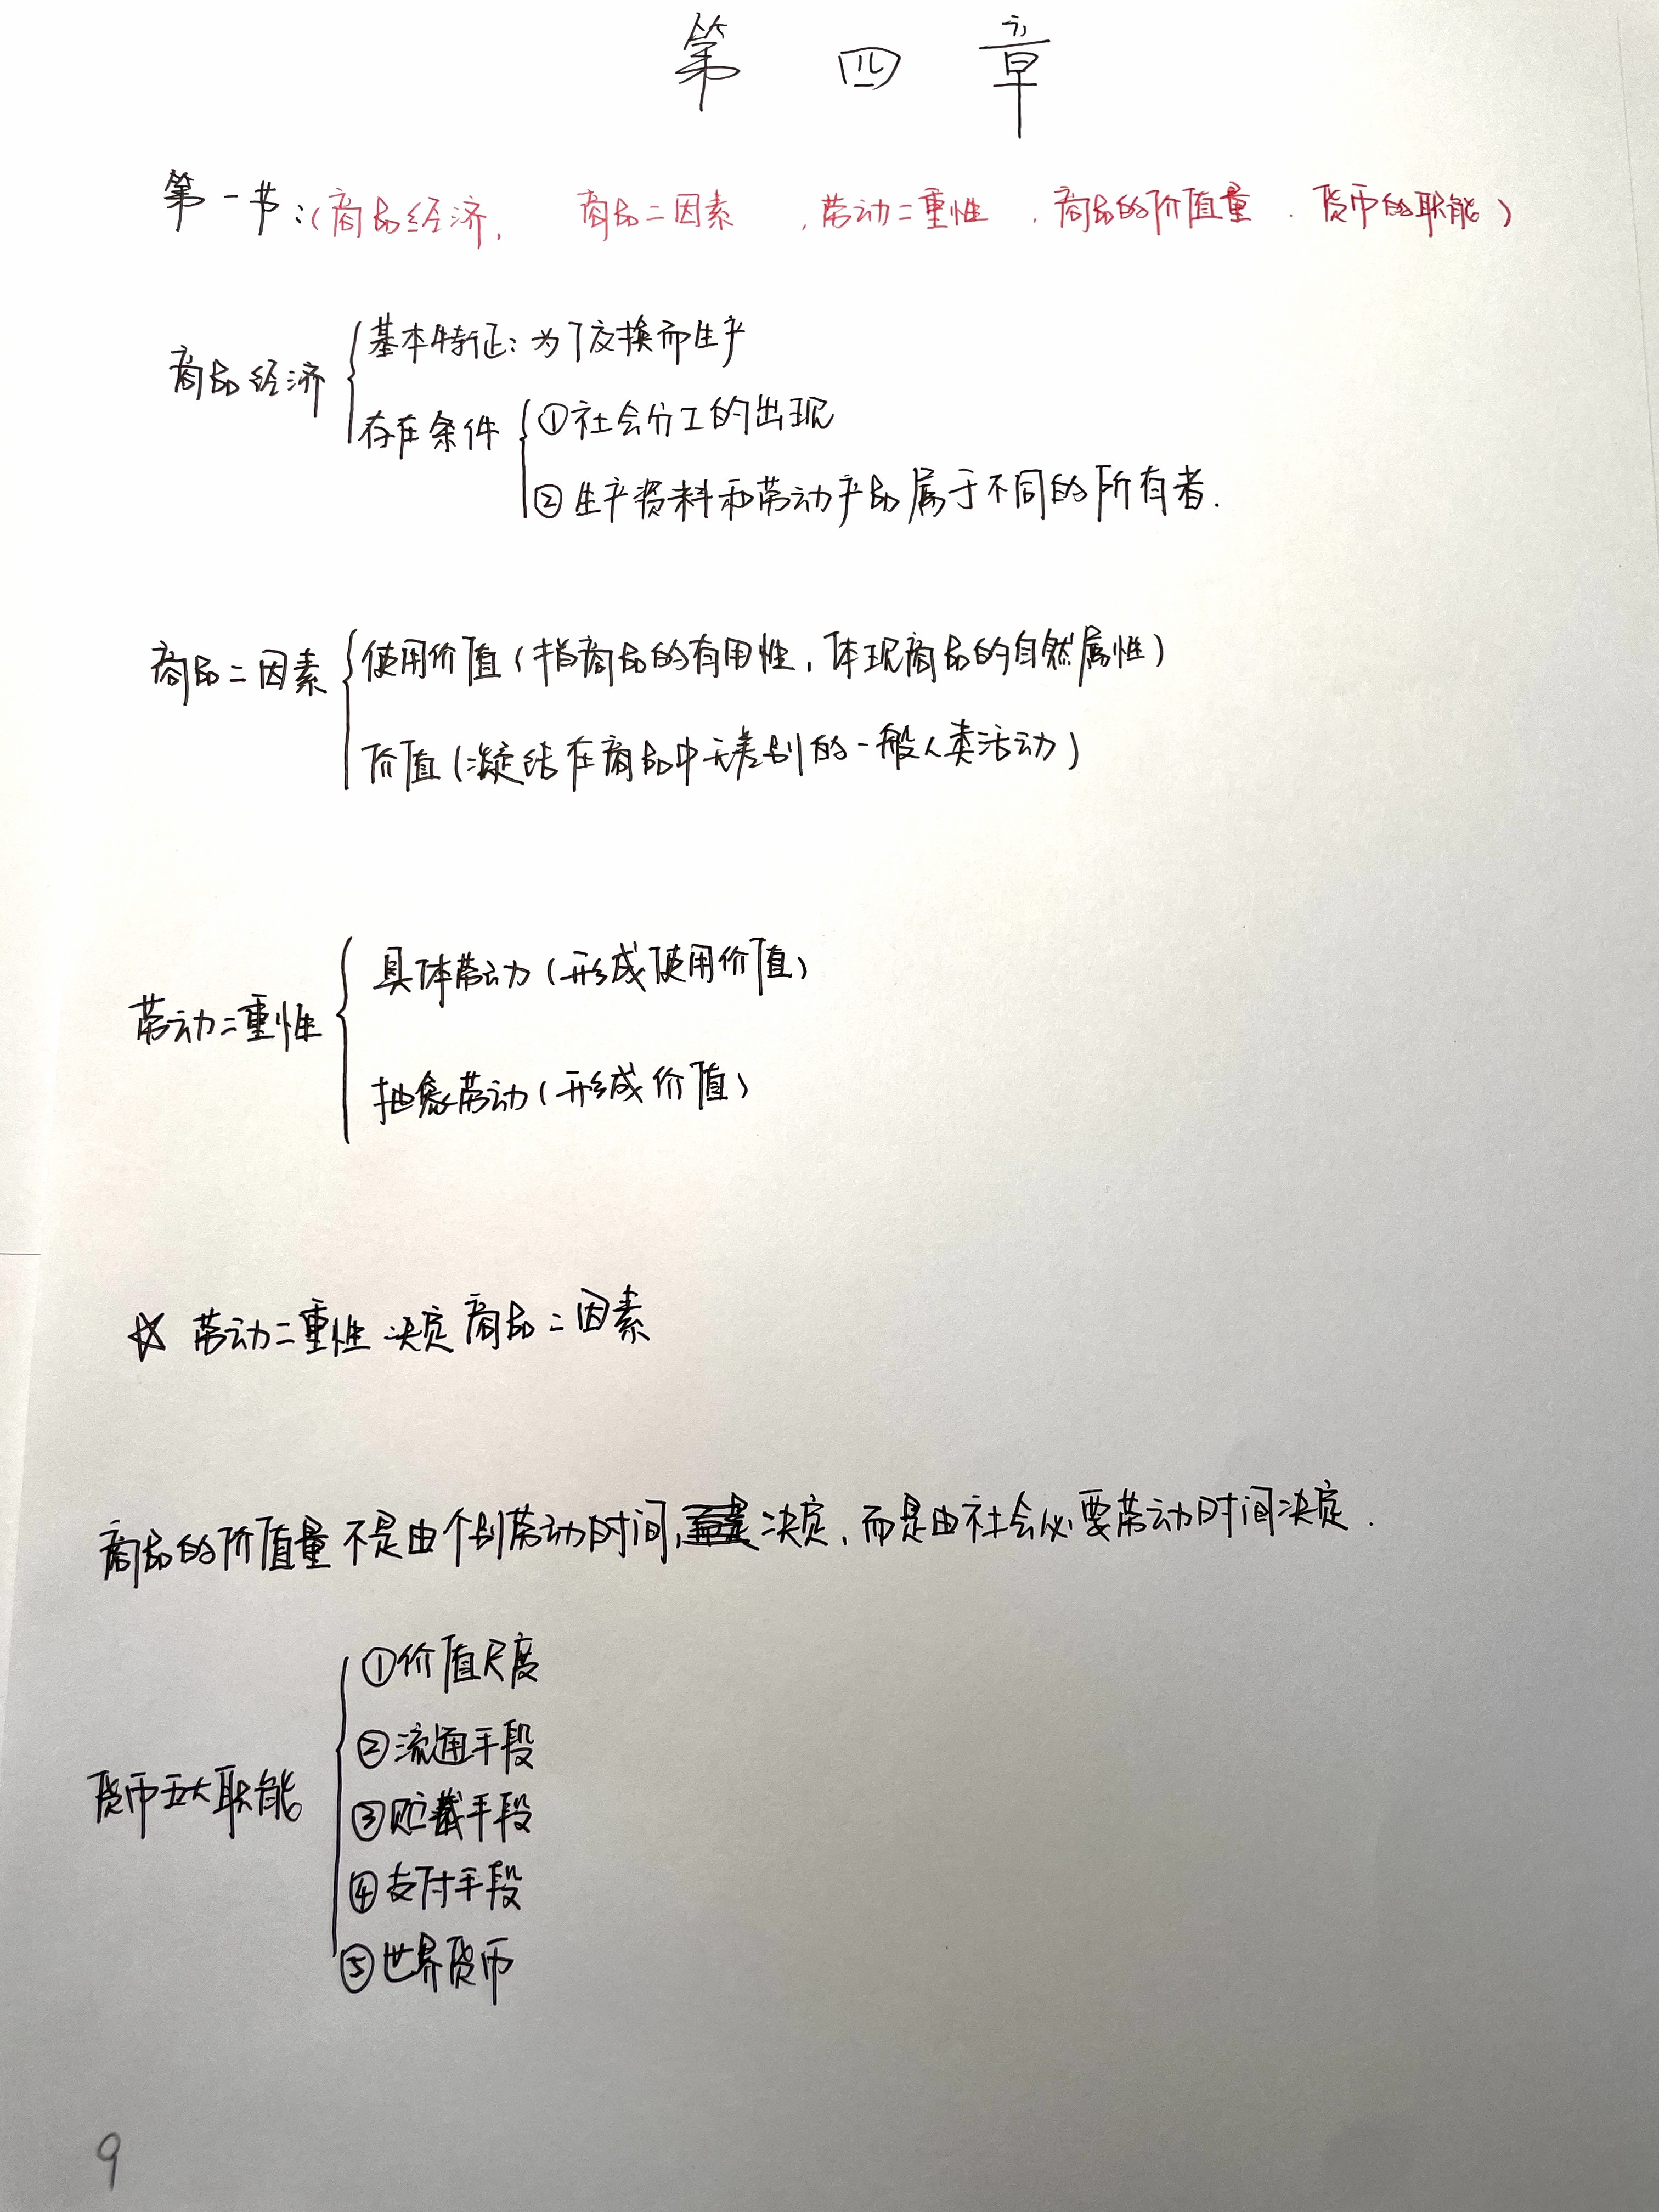 第四章
第一节:(商品经济, 商品二因素, 劳动二重性, 商品的价值量, 货币的职能)
基本特征: 为了交换而生产
商品经济
存在条件
①社会分工的出现
②生产资料和劳动产品属于不同的所有者.
商品二因素
使用价值(指商品的有用性, 体现商品的自然属性)
价值(凝结在商品中无差别的一般人类活动)
劳动二重性
具体劳动(形成使用价值)
抽象劳动(形成价值)
☆ 劳动二重性决定商品二因素
商品的价值量不是由个别劳动时间, 决定, 而是由社会必要劳动时间决定.
货币五大职能
①价值尺度
②流通手段
③贮藏手段
④支付手段
⑤世界货币
9